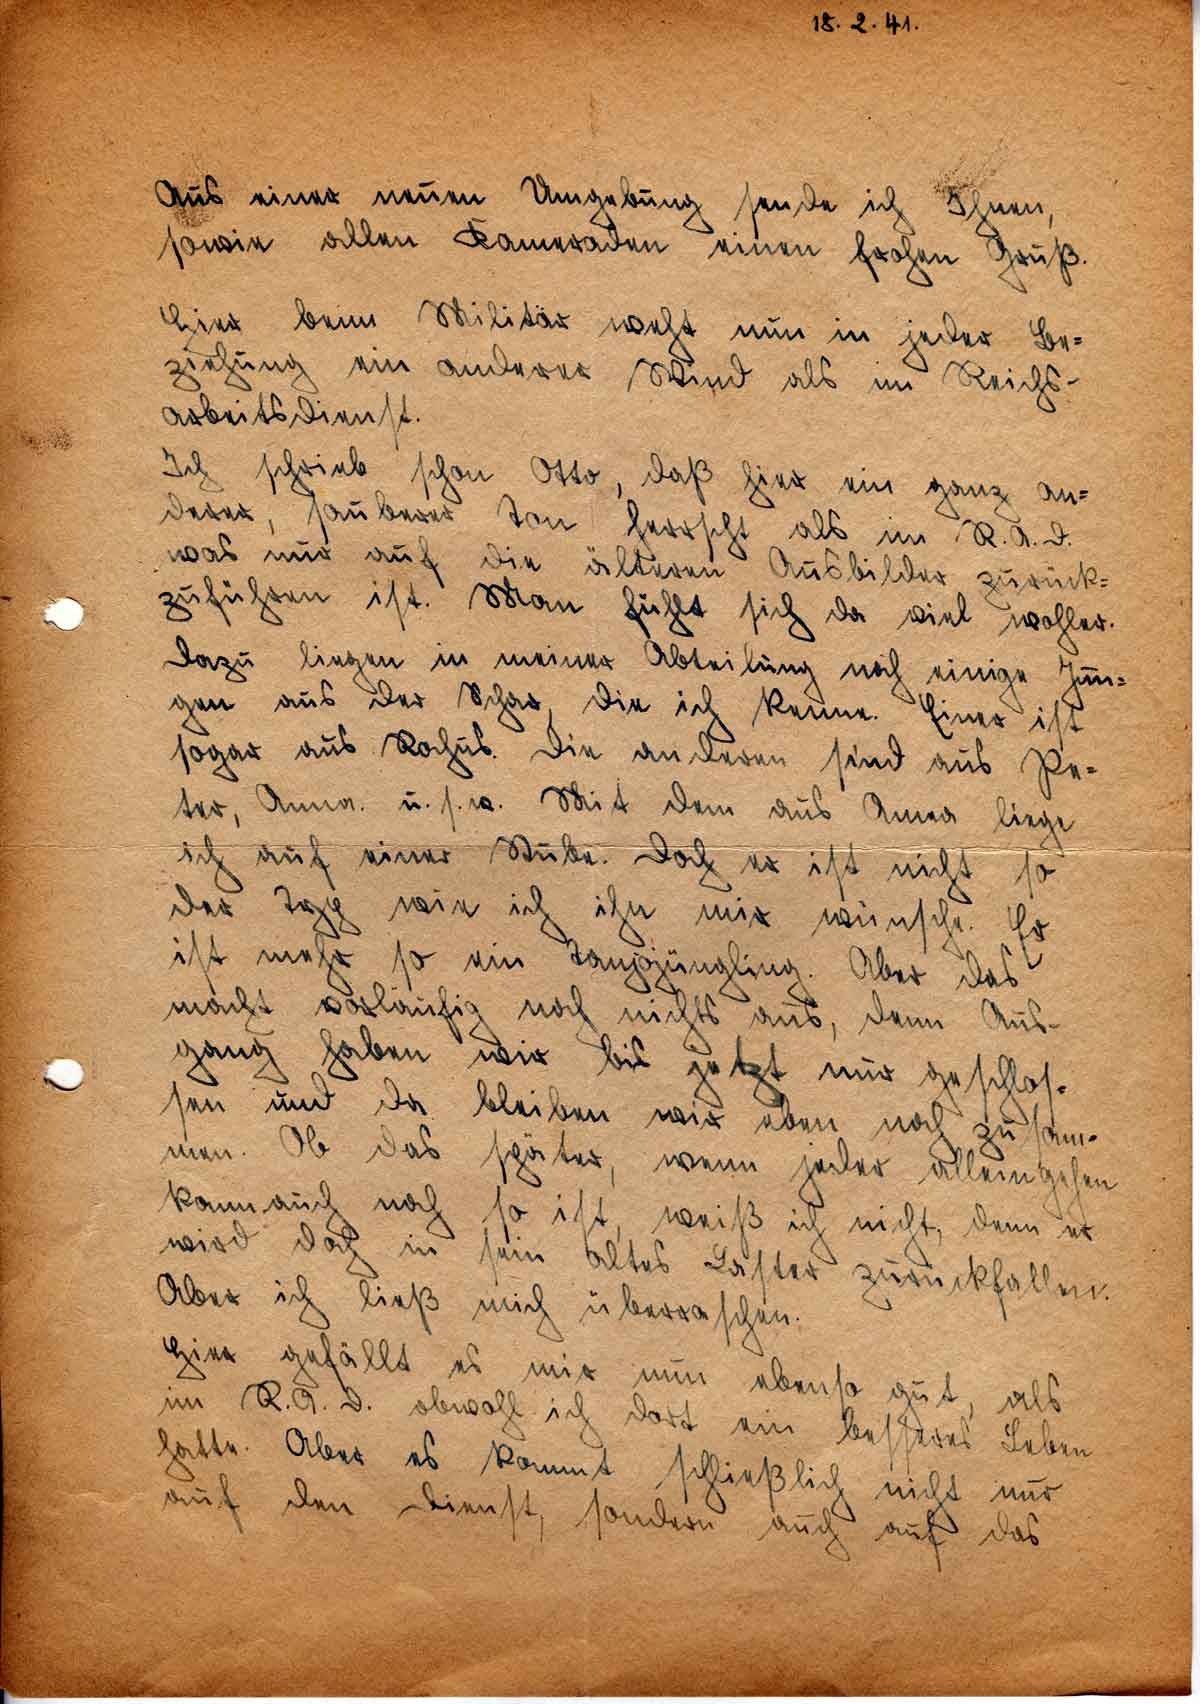 18. 2. 41.
Aus einer neuen Umgebung sende ich Ihnen,
sowie allen Kameraden einen frohen Gruß.
Hier beim Militär weht nun in jeder Be=
ziehung ein anderer Wind als im Reichs-
arbeitsdienst.
Ich schrieb schon Otto, daß hier ein ganz an=
derer, sauberer Ton herrscht als im R.A.D.
was nur auf die älteren Ausbilder zurück=
zuführen ist. Man fühlt sich da viel wohler.
Dazu liegen in meiner Abteilung noch einige Jun=
gen aus der Schar, die ich kenne. Einer ist
sogar aus Rochus. Die anderen sind aus Pe=
ter, Anna. u.s.w. Mit dem aus Anna liege
ich auf einer Stube. Doch er ist nicht so
der Typ wie ich ihn mir wünsche. Er
ist mehr so ein Tanzjüngling. Aber das
macht vorläufig noch nichts aus, denn Aus-
gang haben wir bis jetzt nur geschlos=
sen und da bleiben wir eben noch zusam=
men. Ob das später, wenn jeder allein gehen
kann auch noch so ist, weiß ich nicht, denn er
wird doch in sein altes Laster zurückfallen.
Aber ich ließ mich überraschen.
Hier gefällt es mir nun ebenso gut, als
im R.A.D. obwohl ich dort ein besseres Leben
hatte. Aber es kommt schließlich nicht nur
auf den Dienst, sondern auch auf das